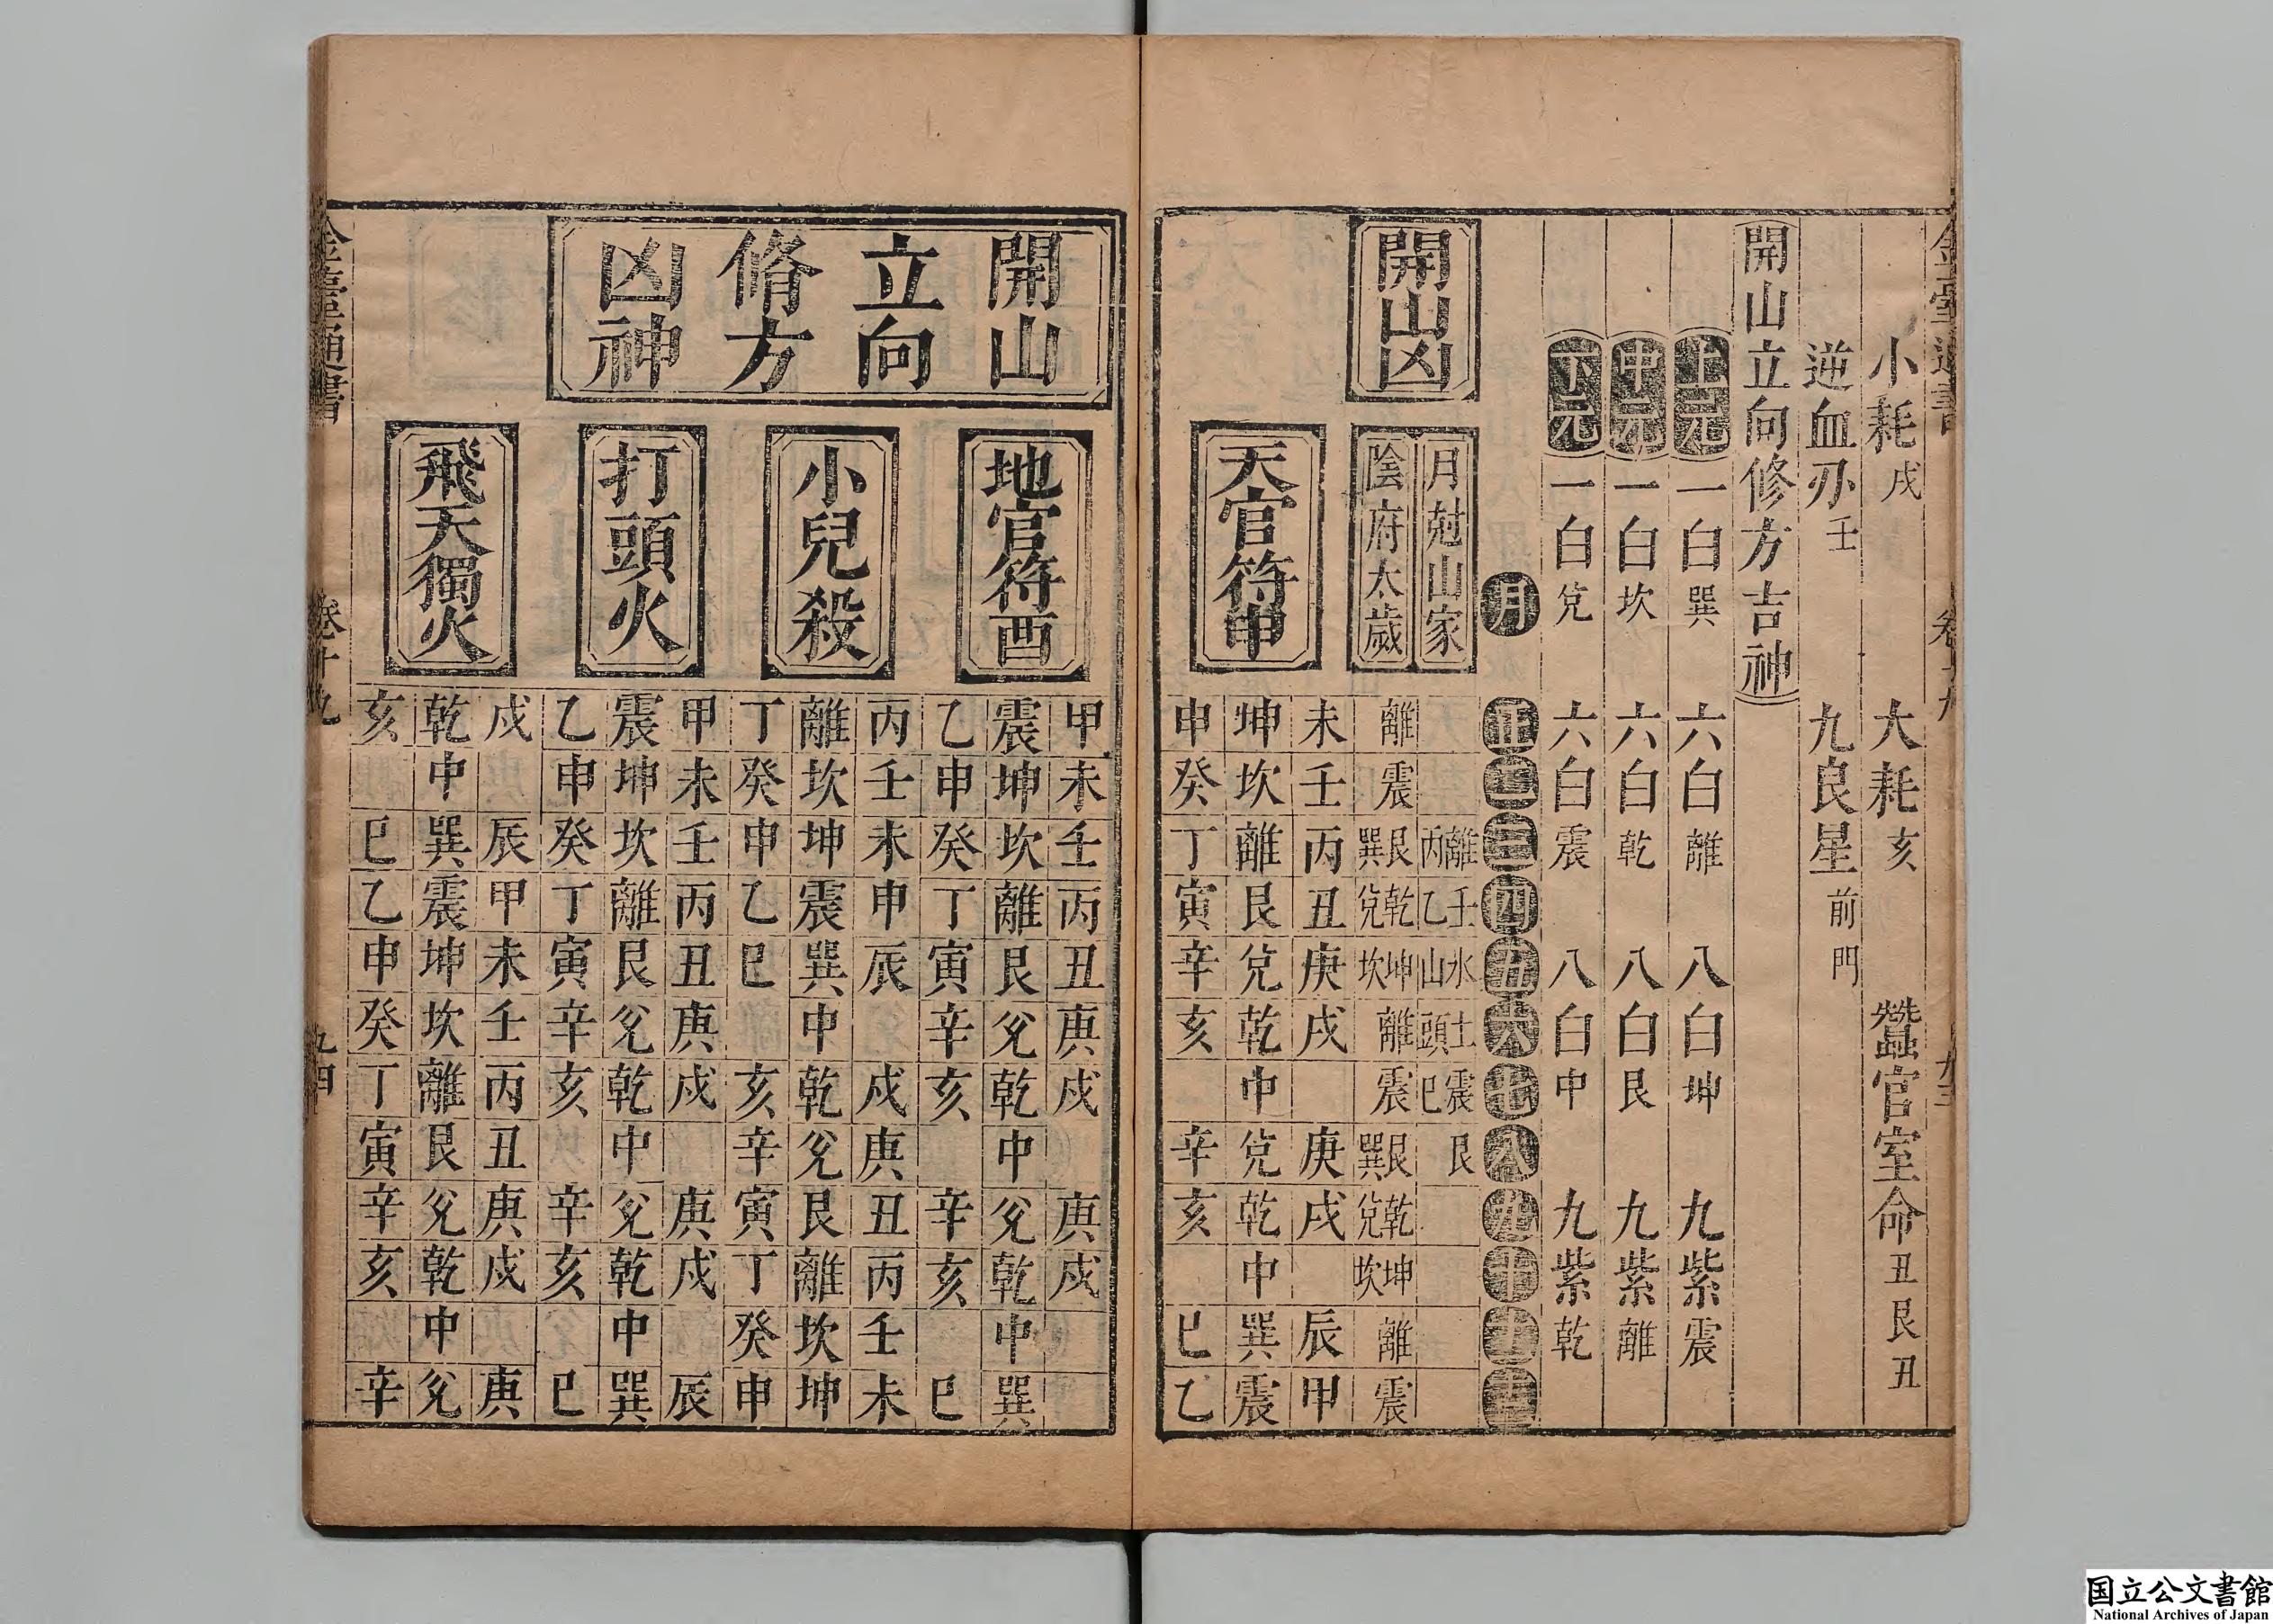 小耗戌 大耗亥 蠶官室命丑艮丑
逆血刃壬 九良星前門
開山立向修方吉神
上元 一白巽 六白離 八白坤 九紫震
中元 一白坎 六白乾 八白艮 九紫離
下元 一白兌 六白震 八白中 九紫乾
月 正 二 三 四 五 六 七 八 九 十 十一 十二
開山凶
月尅山家 離丙 壬乙 水山 土頭 震巳 艮
陰府太歲 離 震 艮巽 乾兌 坤坎 離 震 艮巽 乾兌 坤坎 離 震
天官符申
未 壬 丙 丑 庚 戌 庚 戌 辰 甲
坤 坎 離 艮 兌 乾 中 兌 乾 中 巽 震
申 癸 丁 寅 辛 亥 辛 亥 巳 乙
開山立向脩方凶神
地官符酉
甲 未 壬 丙 丑 庚 戌 庚 戌
震 坤 坎 離 艮 兌 乾 中 兌 乾 中 巽
乙 申 癸 丁 寅 辛 亥 辛 亥 巳
小兒殺
丙 壬 未 甲 辰 戌 庚 丑 丙 壬 未
離 坎 坤 震 巽 中 乾 兌 艮 離 坎 坤
丁 癸 申 乙 巳 亥 辛 寅 丁 癸 申
打頭火
甲 未 壬 丙 丑 庚 戌 庚 戌 辰
震 坤 坎 離 艮 兌 乾 中 兌 乾 中 巽
乙 申 癸 丁 寅 辛 亥 辛 亥 巳
飛天獨火
戌 辰 甲 未 壬 丙 丑 庚 戌 庚
乾 中 巽 震 坤 坎 離 艮 兌 乾 中 兌
亥 巳 乙 申 癸 丁 寅 辛 亥 辛
卷十九
国立公文書館
National Archives of Japan